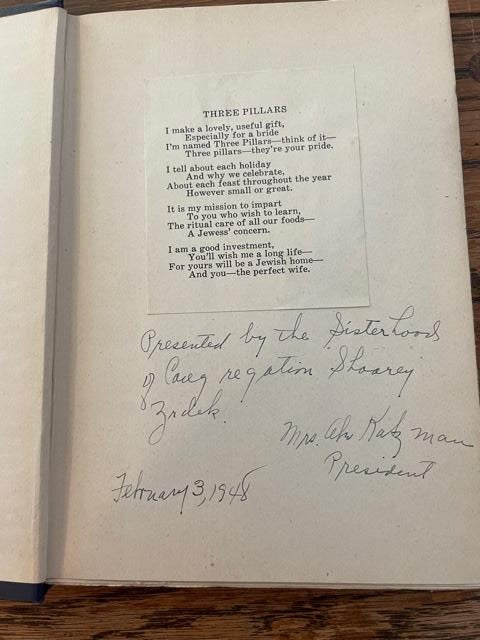 THREE PILLARS
I make a lovely, useful gift,
Especially for a bride
I'm named Three Pillars—think of it—
Three pillars—they're your pride.
I tell about each holiday
And why we celebrate,
About each feast throughout the year
However small or great.
It is my mission to impart
To you who wish to learn,
The ritual care of all our foods—
A Jewess' concern.
I am a good investment,
You'll wish me a long life—
For yours will be a Jewish home—
And you—the perfect wife.
Presented by the Sisterhood
of Congregation Shaarey
Zedek.
Mrs. Abe Katzman
President
February 3, 1948